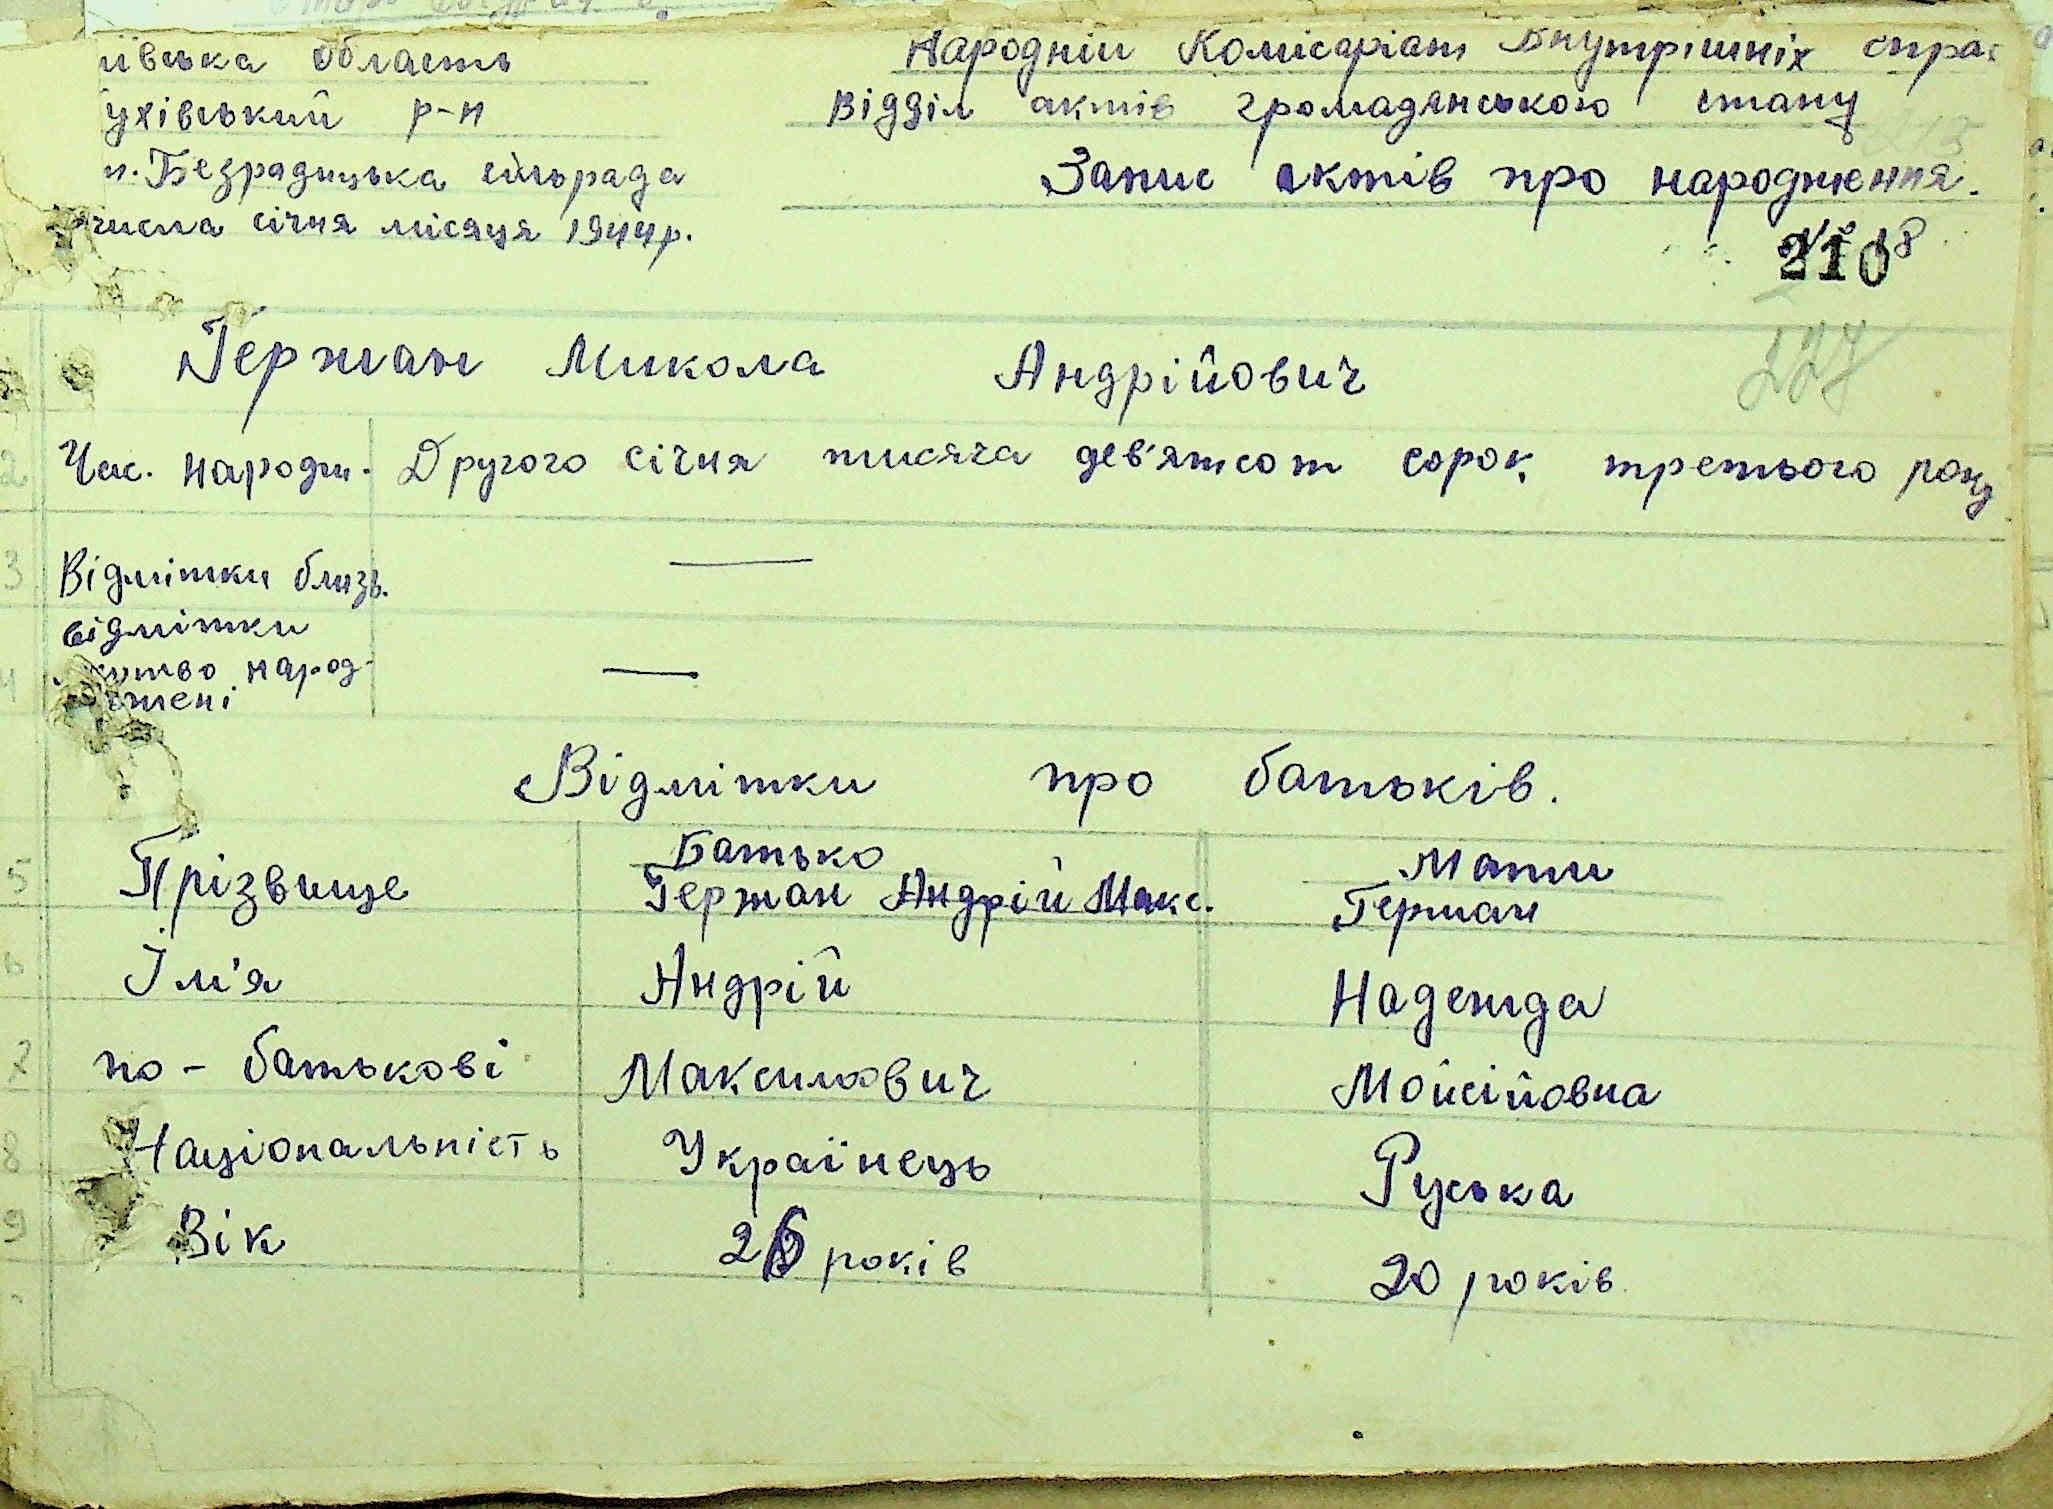 ївська область
Народній Комісаріат Внутрішніх справ
ухівський р-н
Відділ актів громадянського стану
Безрадицька сільрада
Запис актів про народження.
числа січня місяця 1944р.
№ 18
210
227
Герман Микола Андрійович
2 Час. народж. Другого січня тисяча дев'ятсот сорок третього року
3 Відмітки близь.
відмітки
4 народ-
жені
Відмітки про батьків.
Батько Мати
5 Прізвище Герман Андрій Макс. Герман
6 Ім'я Андрій Надежда
7 по-батькові Максимович Мойсійовна
8 Національність Українець Руська
9 Вік 26 років 20 років